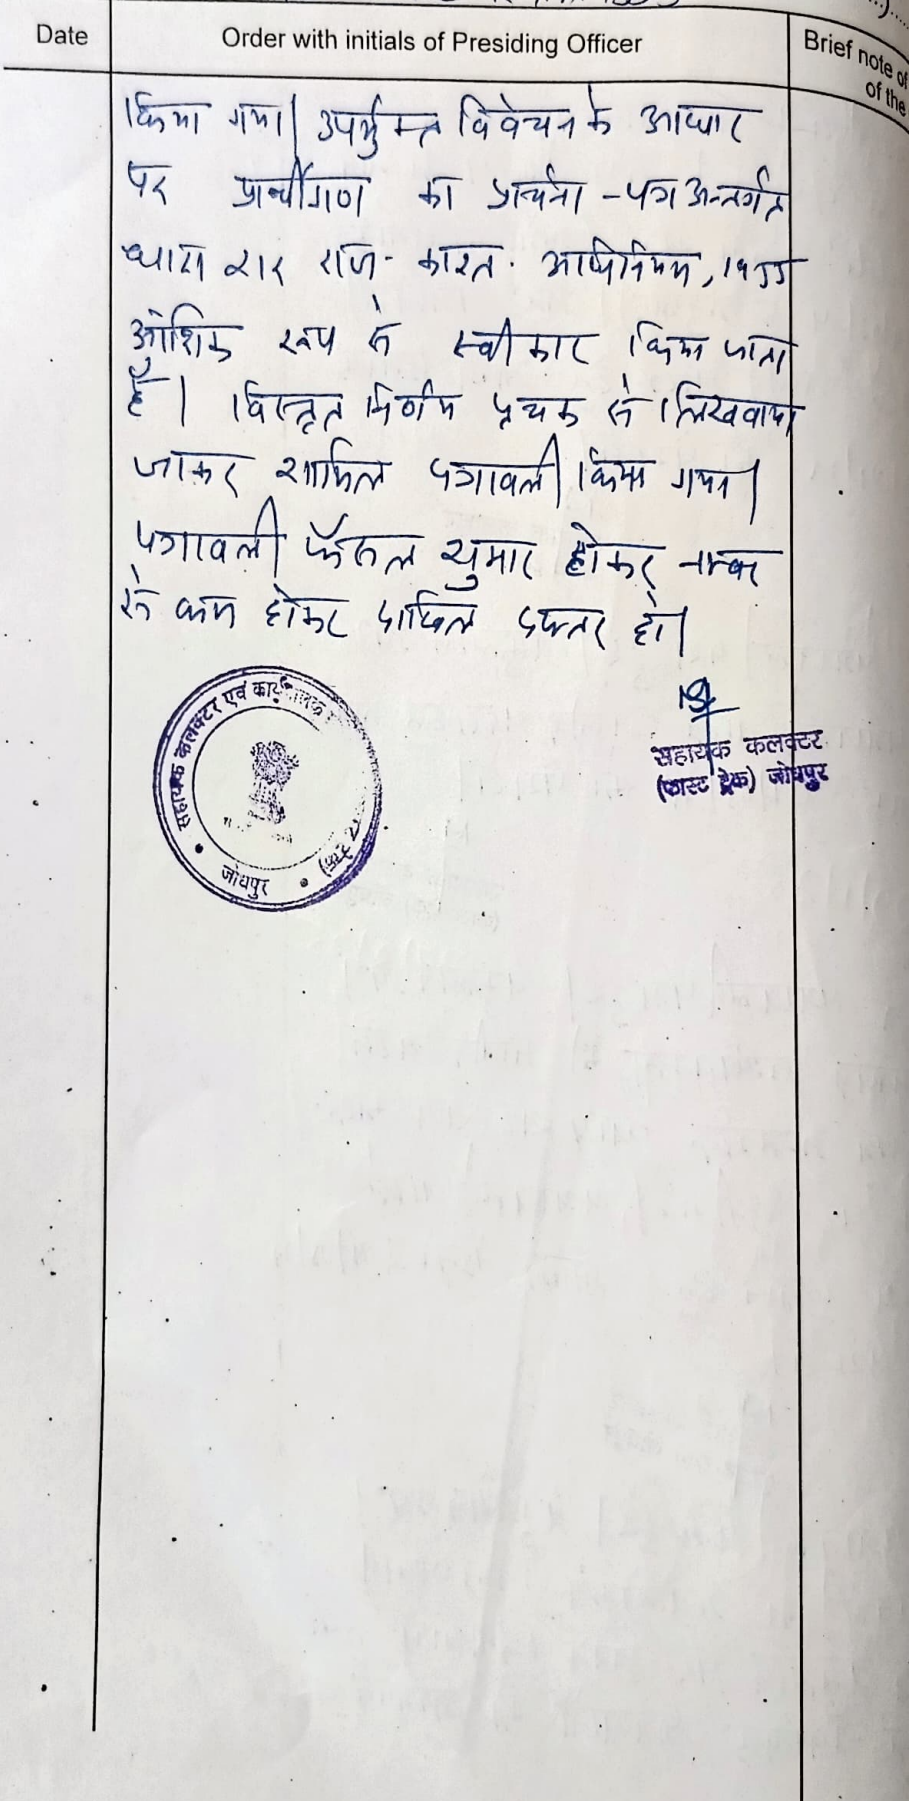 Date
Order with initials of Presiding Officer
Brief note of
of the
किया गया। उपर्युक्त विवेचन के आधार
पर प्रार्थीगण का प्रार्थना-पत्र अन्तर्गत
धारा २१२ राज. काश्त. अधिनियम, 1955
आंशिक रूप से स्वीकार किया जाता
है। विस्तृत निर्णय पृथक से लिखवाया
जाकर शामिल पत्रावली किया गया।
पत्रावली फैसल शुमार होकर नम्बर
से कम होकर दाखिल दफ्तर हो।
सहायक कलक्टर
(फास्ट ट्रेक) जोधपुर
सहायक कलक्टर एवं
जोधपुर